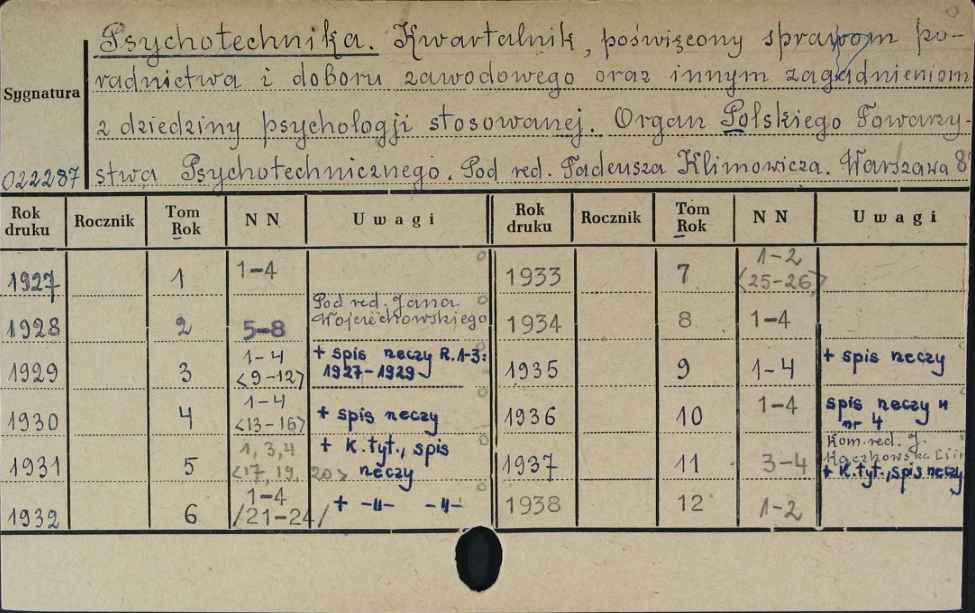 Psychotechnika. Kwartalnik, poświęcony sprawom po-
radnictwa i doboru zawodowego oraz innym zagadnieniom
Sygnatura
z dziedziny psychologji stosowanej. Organ Polskiego Towarzy-
022287 stwa Psychotechnicznego. Pod red. Tadeusza Klimowicza. Warszawa 8°
Rok druku Rocznik Tom Rok N N Uwagi Rok druku Rocznik Tom Rok N N Uwagi
1927 1 1-4 1933 7 1-2 <25-26>
1928 2 5-8 Pod red. Jana Wojciechowskiego 1934 8 1-4
1929 3 1-4 <9-12> + spis rzeczy R. 1-3: 1927-1929 1935 9 1-4 + spis rzeczy
1930 4 1-4 <13-16> + spis rzeczy 1936 10 1-4 spis rzeczy w nr 4
1931 5 1, 3, 4 <17, 19, 20> + k. tyt., spis rzeczy 1937 11 3-4 Kom. red. J. + k. tyt., spis rzeczy
1932 6 1-4 /21-24/ + -"- -"- 1938 12 1-2